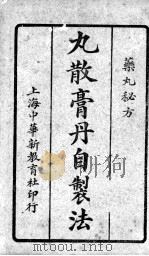 藥丸秘方
丸散膏丹自製法
上海中華新教育社印行
www.youbook.com